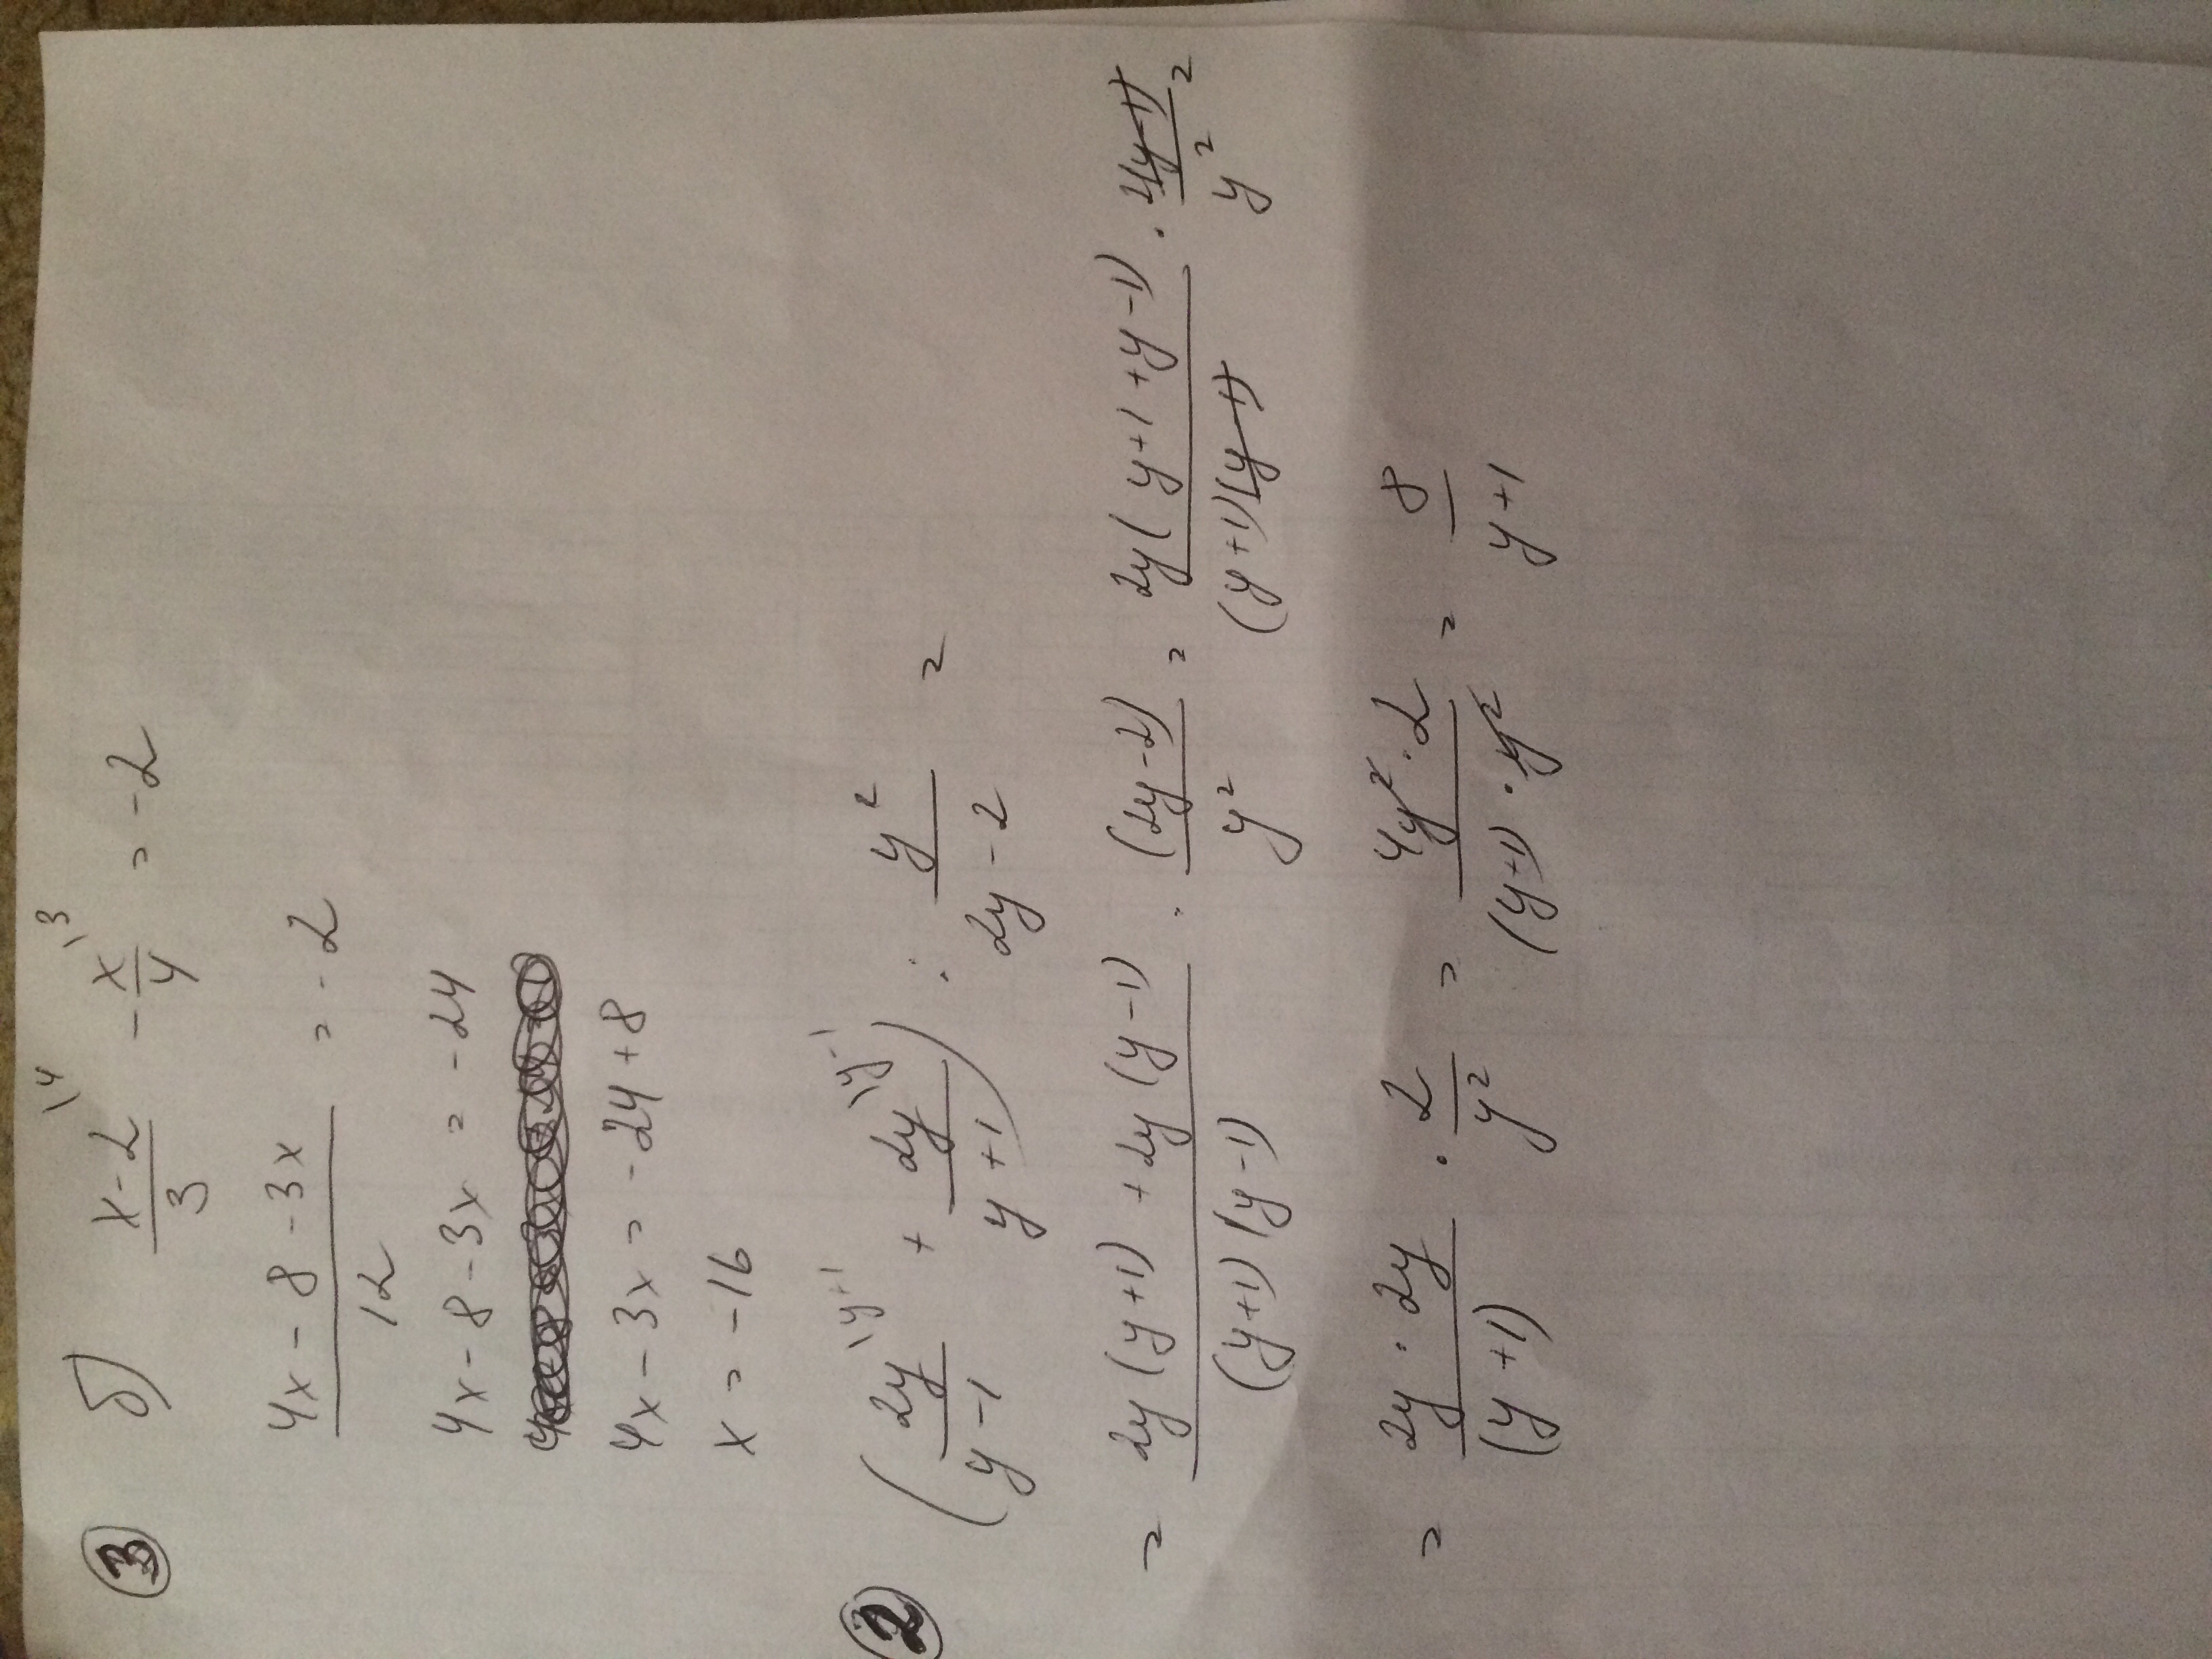 ③ б) (x-2)/3 \4 - x/4 \3 = -2
(4x - 8 - 3x)/12 = -2
4x - 8 - 3x = -24
4x - 3x = -24 + 8
x = -16
② (2y/(y-1) \y+1 + 2y/(y+1) \y-1) : y²/(2y-2) =
= (2y(y+1) + 2y(y-1))/((y+1)(y-1)) · (2y-2)/y² = 2y(y+1+y-1)/((y+1)(y-1)) · 2(y-1)/y² =
= (2y · 2y)/(y+1) · 2/y² = (4y² · 2)/((y+1) · y²) = 8/(y+1)